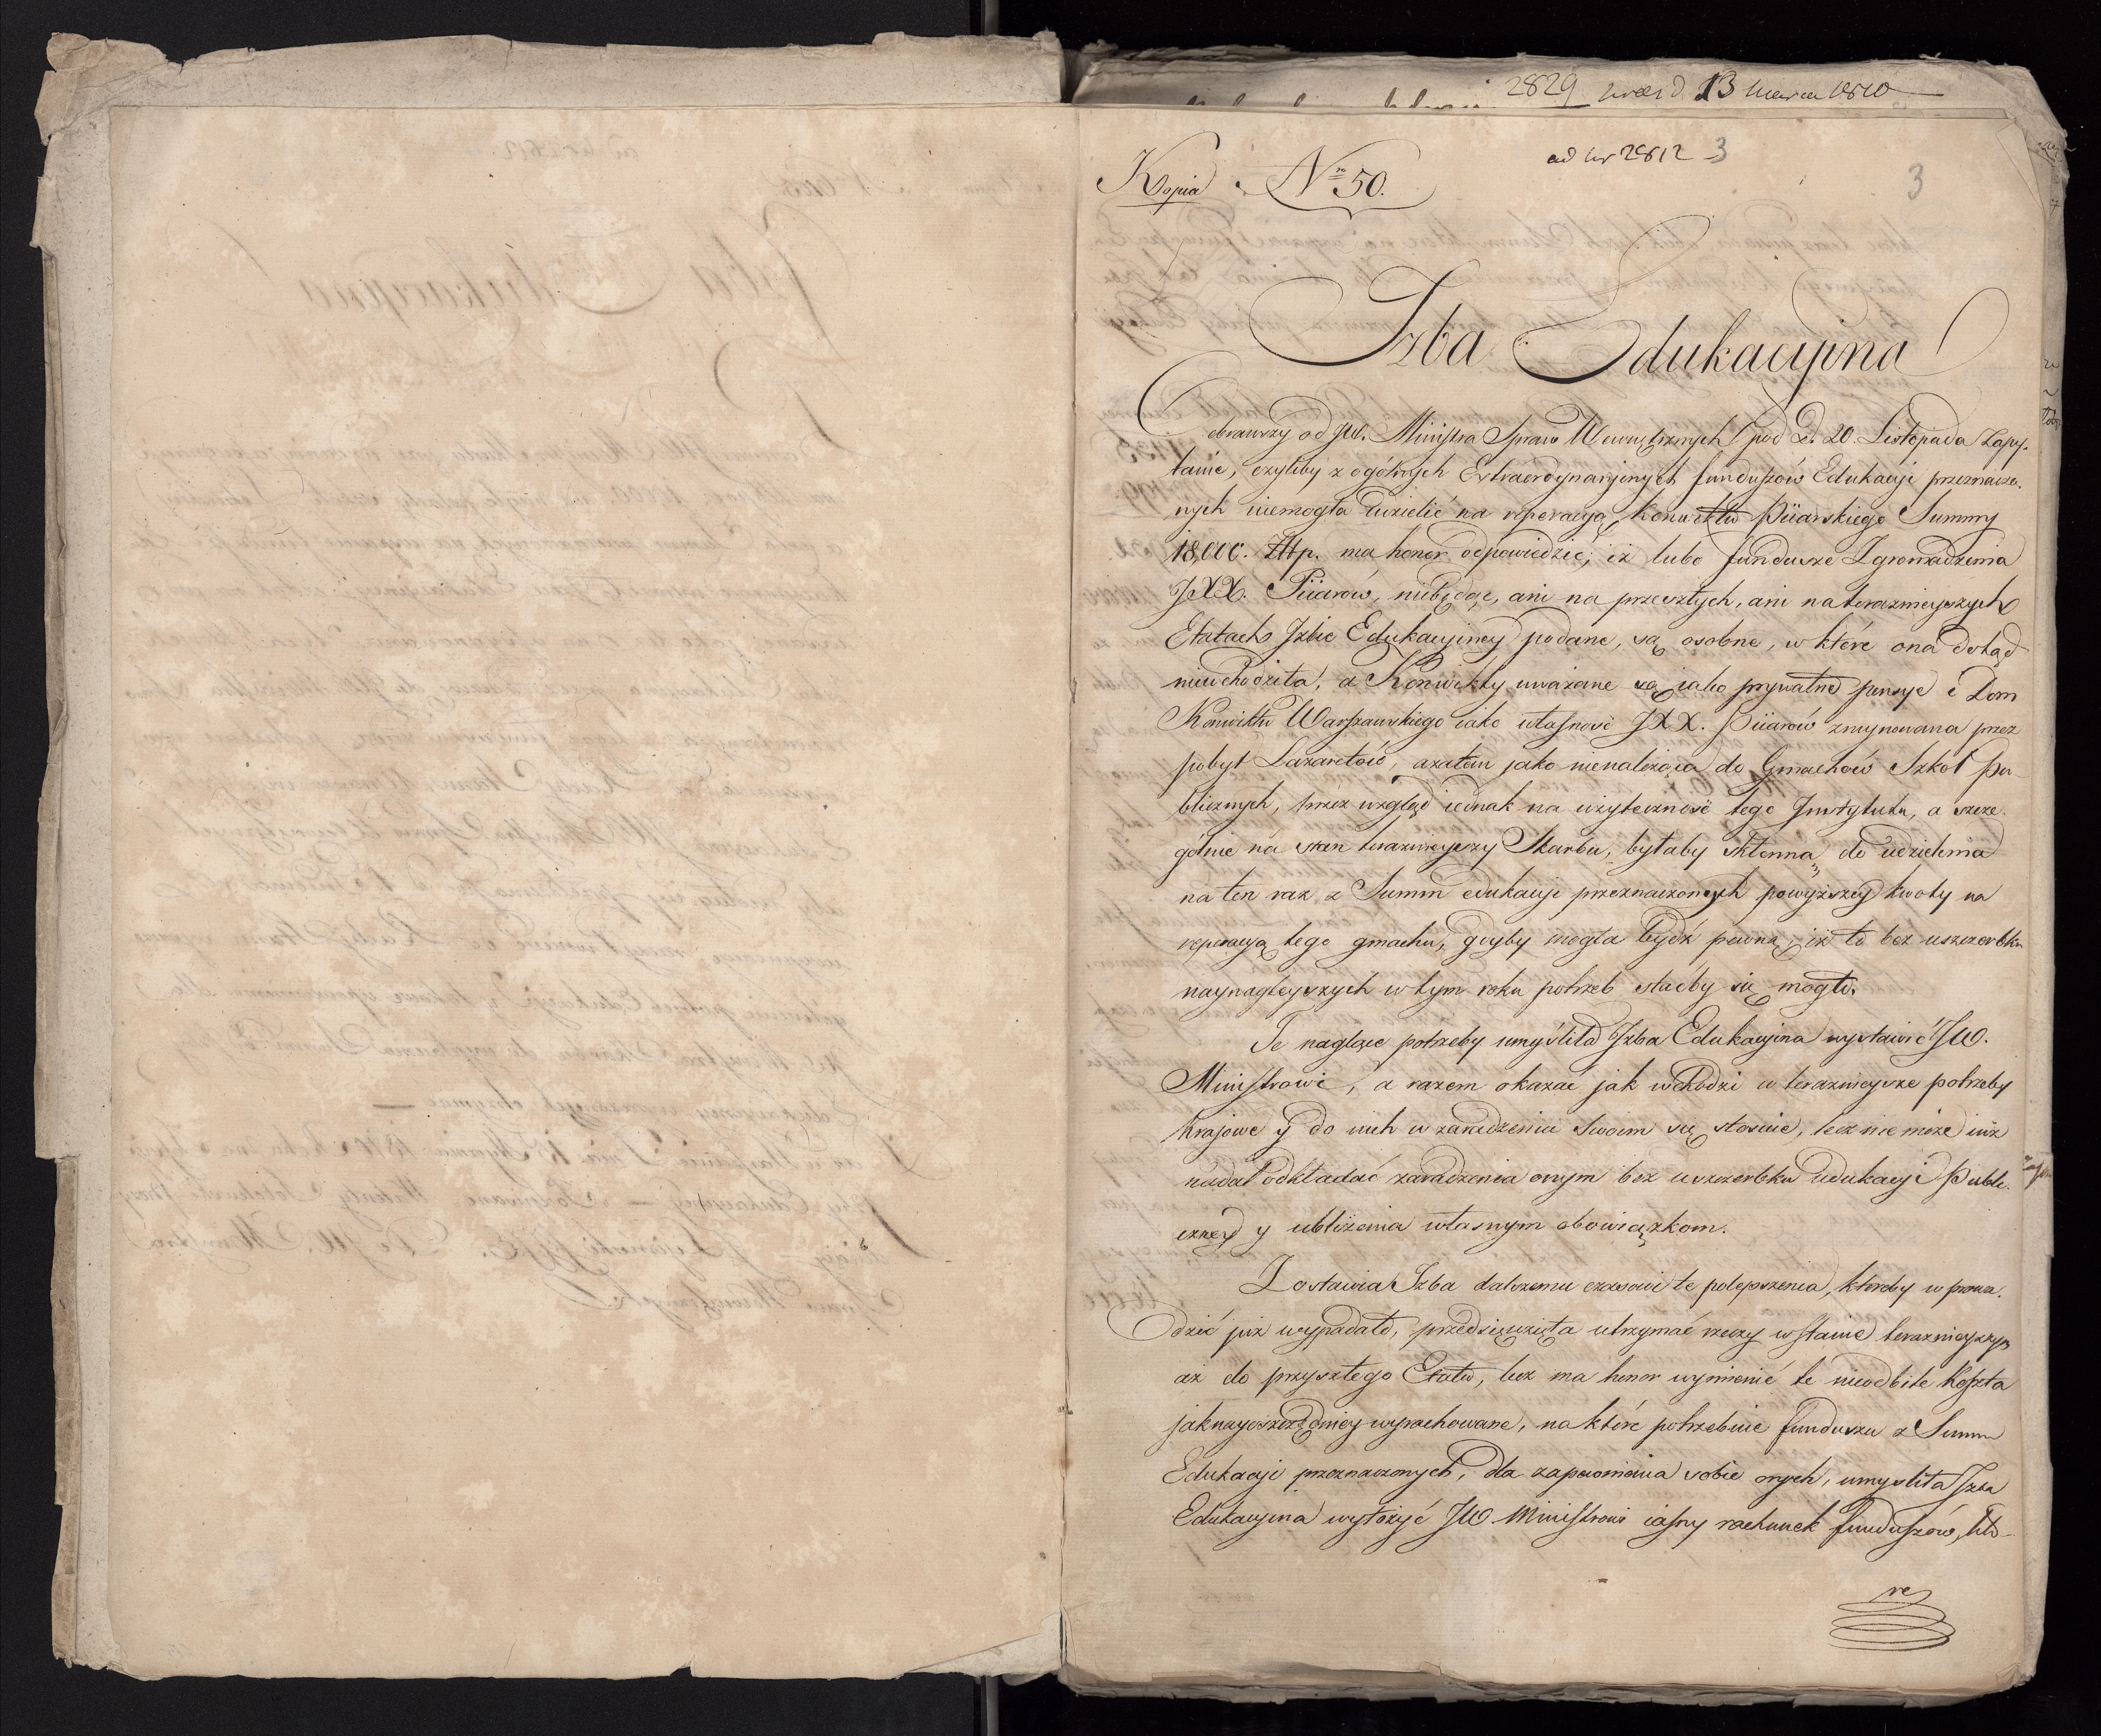 2829 13 Marca 1810
ad Nr 2812 3
Kopia Nro 50. 3
Izba Edukacyina
Odebrawszy od JW. Ministra Spraw Wewnętrznych pod d. 20. Listopada Zapy-
tanie, czyliby z ogólnych Extraordynaryinych funduszów Edukacyi przeznaczo-
nych niemogła udzielić na reperacyą Konwiktu Piiarskiego Summy
18,000. Złłp. ma honor odpowiedzić, iż lubo fundusze Zgromadzenia
JXX. Piiarów, niebędąc, ani na przeszłych, ani na teraznieyszych
Etatach Izbie Edukacyiney podane, są osobne, w które ona dotąd
niewchodziła, a Konwikty uważane są iako prywatne pensye i Dom
Konwiktu Warszawskiego iako własność JXX. Piiarów zruynowana przez
pobyt Lazaretów, azatem jako nienależąca do Gmachów Szkół Pu-
blicznych, przez wzgląd iednak na użyteczność tego Instytutu, a szcze-
gólnie na stan teraznieyszy Skarbu, byłaby skłonną do udzielenia
na ten raz z Summ edukacyi przeznaczonych powyższey kwoty na
reperacyą tego gmachu, gdyby mogła bydź pewną, iż to bez uszczerbku
naynagleyszych w tym roku potrzeb staćby się mogło.
Te naglące potrzeby umyśliła Izba Edukacyina wystawić JW.
Ministrowi, a razem okazać jak wchodzi w teraznieysze potrzeby
Krajowe y do nich w zarządzeniu Swoim się stosuie, lecz nie może iuż
nadal odkładać zaradzenia onym bez uszczerbku edukacyi Publi-
czney y ubliżenia własnym obowiązkom.
Zostawia Izba dalszemu czasowi te polepszenia, któreby wprowa-
dzić już wypadało, przedsięwzięła utrzymać rzeczy w stanie teraznieyszym
aż do przyszłego Etatu, lecz ma honor wymienić te nieodbite koszta
jaknayoszczędniey wyrachowane, na które potrzebuie funduszu z Summ
Edukacyi przeznaczonych, dla zapewnienia sobie onych, umyśliła Izba
Edukacyina wyłożyć JW. Ministrowi iasny rachunek funduszów, któ-
re